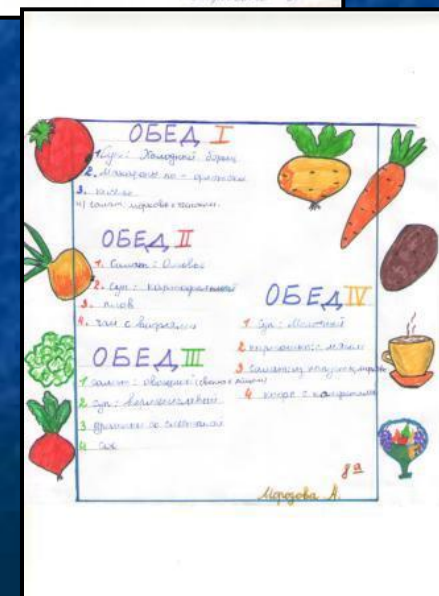 ОБЕД I
1. Суп: Холодный борщ
2. Макароны по-флотски
3. кисель
4) салат морковь с чесноком.
ОБЕД II
1. Салат: Оливье
2. Суп: картофельный
3. плов
4. чай с вафлями
ОБЕД III
1 салат: овощной (свекла с
2 суп: вермишелевый
3 драники со сметаной
4 сок
ОБЕД IV
1 Суп: Молочный
2 картошка с мясом
3 салат из капусты,
4 кофе с конфетами
8 а
Морозова А.